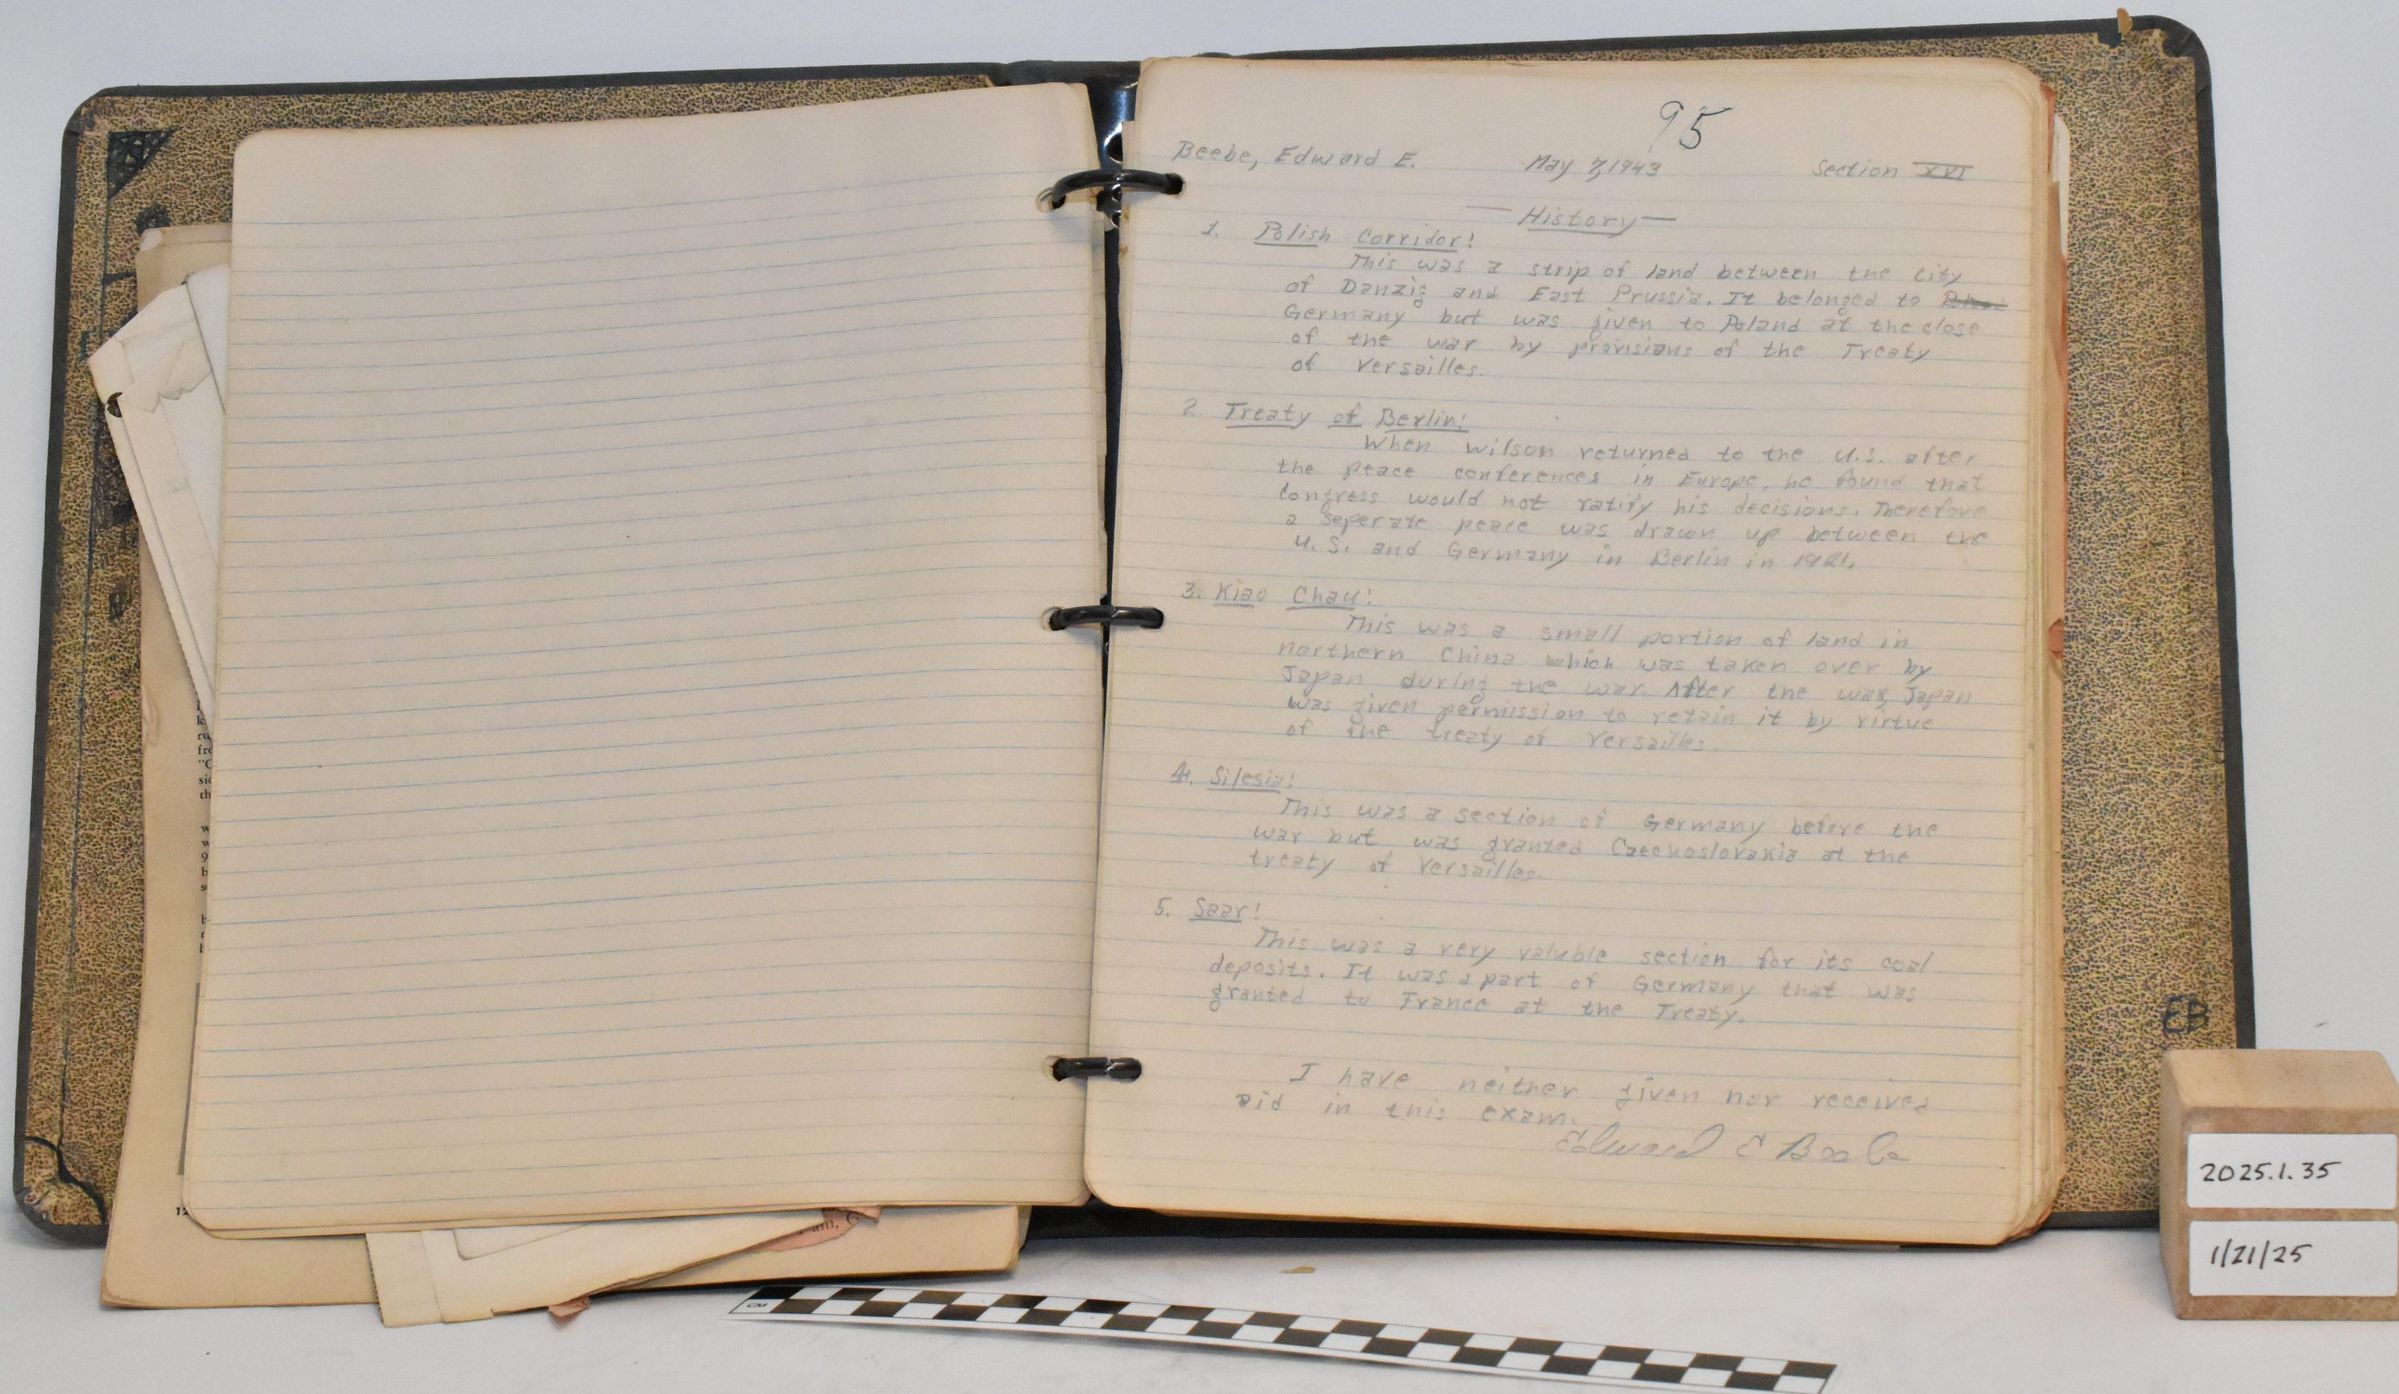 95
Beebe, Edward E. May 7, 1943 Section XVI
— History —
1. Polish Corridor!
This was a strip of land between the City
of Danzig and East Prussia. It belonged to
Germany but was given to Poland at the close
of the war by provisions of the Treaty
of Versailles.
2. Treaty of Berlin!
When Wilson returned to the U.S. after
the peace conferences in Europe, he found that
Congress would not ratify his decisions. Therefore
a seperate peace was drawn up between the
U.S. and Germany in Berlin in 1921.
3. Kiao Chau!
This was a small portion of land in
northern China which was taken over by
Japan during the war. After the war, Japan
was given permission to retain it by virtue
of the treaty of Versailles.
4. Silesia!
This was a section of Germany before the
war but was granted Czechoslovakia at the
treaty of Versailles.
5. Saar!
This was a very valuble section for its coal
deposits. It was a part of Germany that was
granted to France at the Treaty.
I have neither given nor received
aid in this exam.
Edward E Beebe
EB
2025.1.35
1/21/25
CM
12